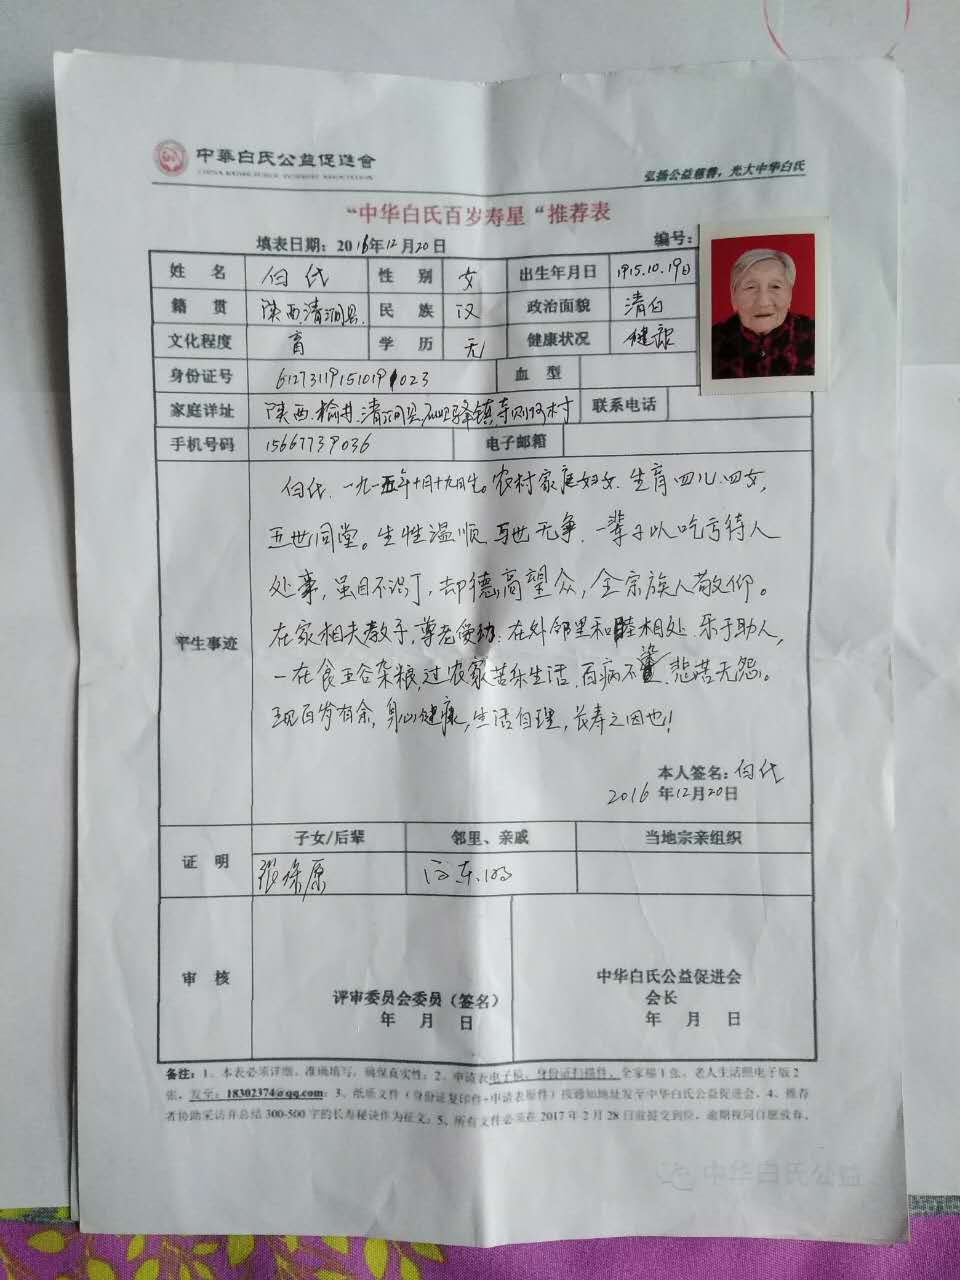 中華白氏公益促進會
弘扬公益慈善，光大中华白氏
“中华白氏百岁寿星“推荐表
填表日期：2016年12月20日 编号：
姓 名 白氏 性 别 女 出生年月日 1915.10.19日
籍 贯 陕西清涧县. 民 族 汉 政治面貌 清白
文化程度 盲 学 历 无 健康状况 健康
身份证号 612731191510191023 血 型
家庭详址 陕西.榆林.清涧县.石咀驿镇.寺则河村 联系电话
手机号码 15667739036 电子邮箱
平生事迹
白氏.一九一五年十月十九日生。农村家庭妇女.生育四儿.四女，
五世同堂。生性温顺.与世无争.一辈子以吃亏待人
处事，虽目不识丁，却德高望众，全宗族人敬仰。
在家相夫教子，尊老爱幼；在外邻里和睦相处.乐于助人，
一在食五谷杂粮，过农家苦乐生活.百病不染.悲苦无怨。
现百岁有余，身心健康，生活自理，长寿之因也！
本人签名：白氏
2016年12月20日
证 明 子女/后辈 邻里、亲戚 当地宗亲组织
张保原
审 核
评审委员会委员（签名）
年 月 日
中华白氏公益促进会
会长
年 月 日
备注：1、本表必须详细、准确填写，确保真实性；2、申请表电子稿、身份证扫描件，全家福1张、老人生活照电子版2
张，发至：18302374@qq.com；3、纸质文件（身份证复印件+申请表原件）按通知地址发至中华白氏公益促进会。4、推荐
者协助采访并总结300-500字的长寿秘诀作为征文；5、所有文件必须在2017年2月28日前提交到位，逾期视同自愿放弃。
中华白氏公益